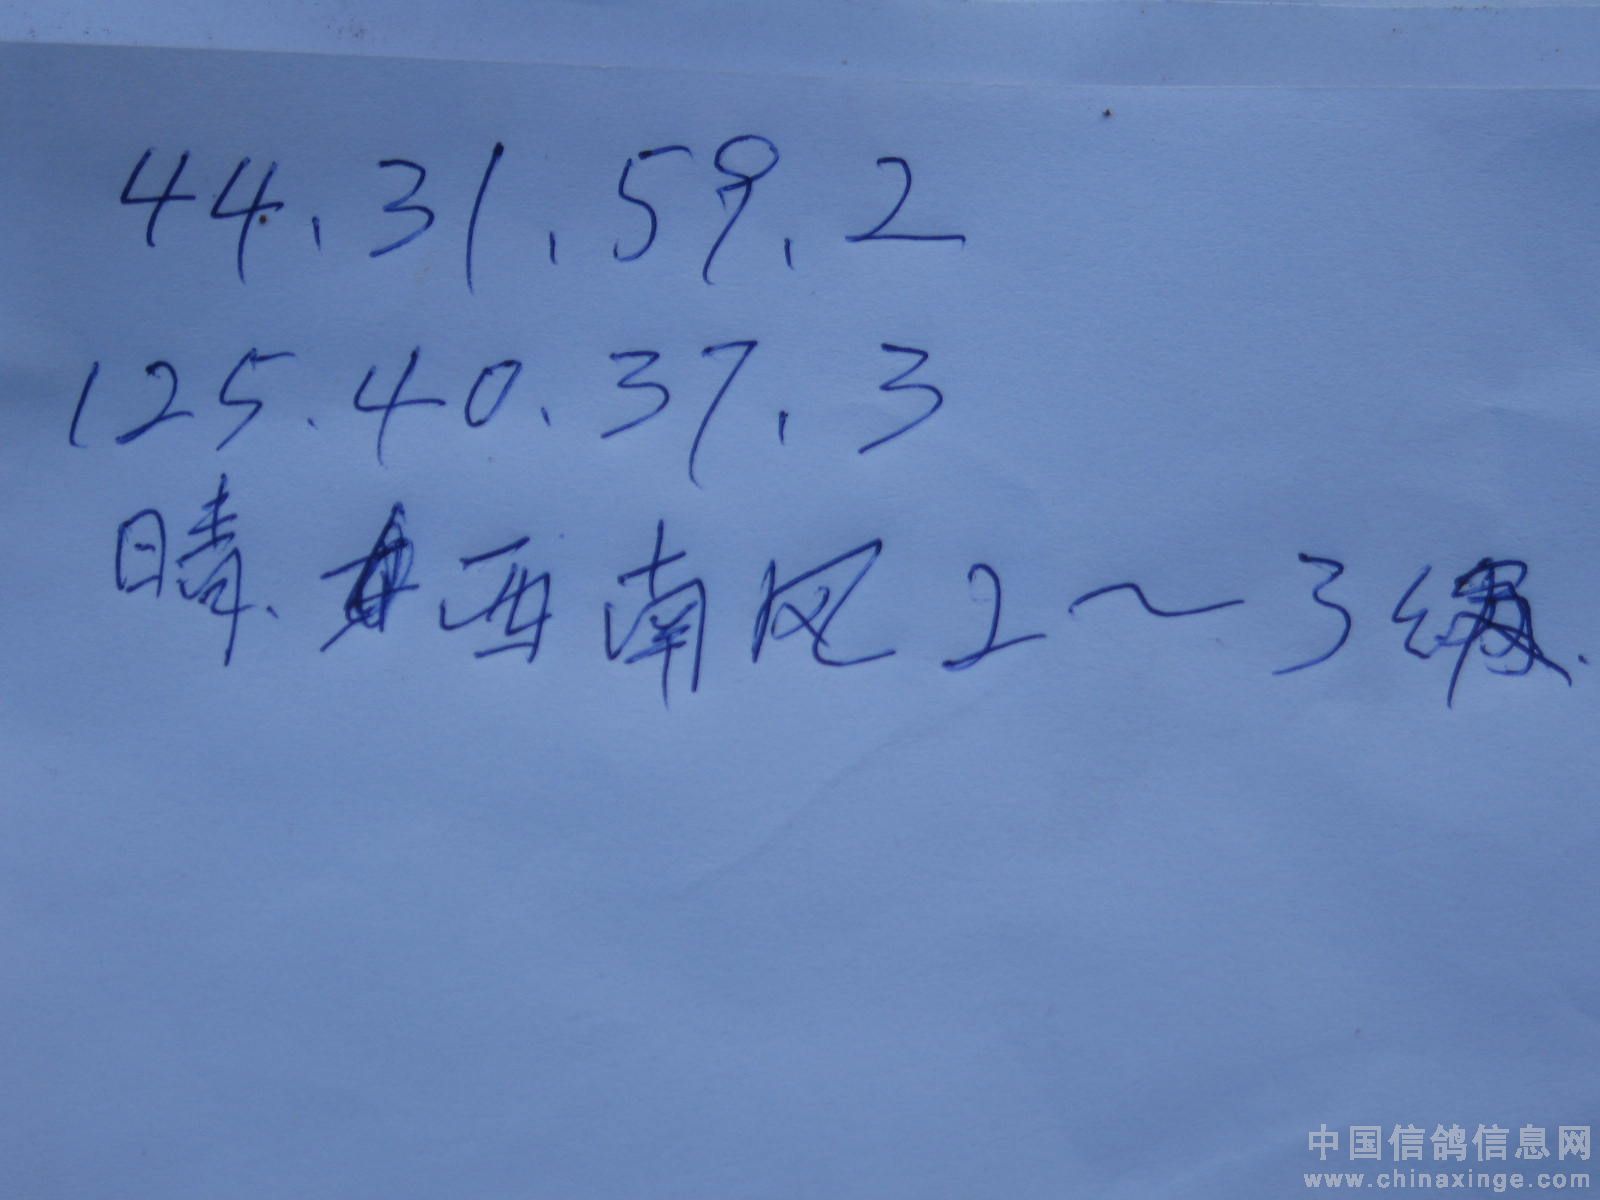 44.31.59.2
125.40.37.3
晴.西南风2～3级.
中国信鸽信息网
www.chinaxinge.com